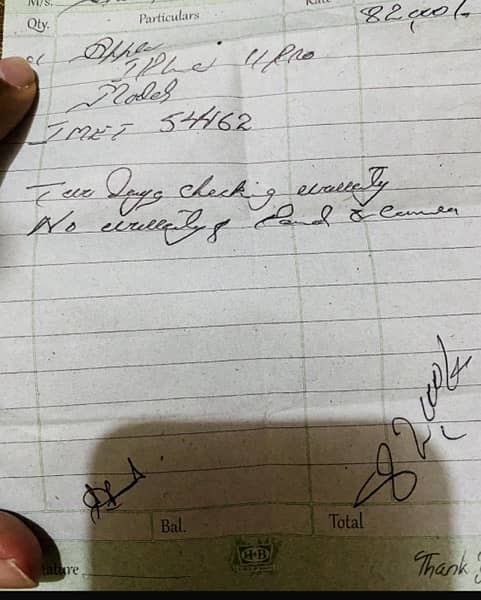 M/s.
Qty. Particulars Rate
01 Apple 82,000/-
I Phone 11 Pro
Model
IMEI 54462
Two Days checking warranty
No warranty of Panel & Camera
82,000/-
Bal. Total
H·B
Thank